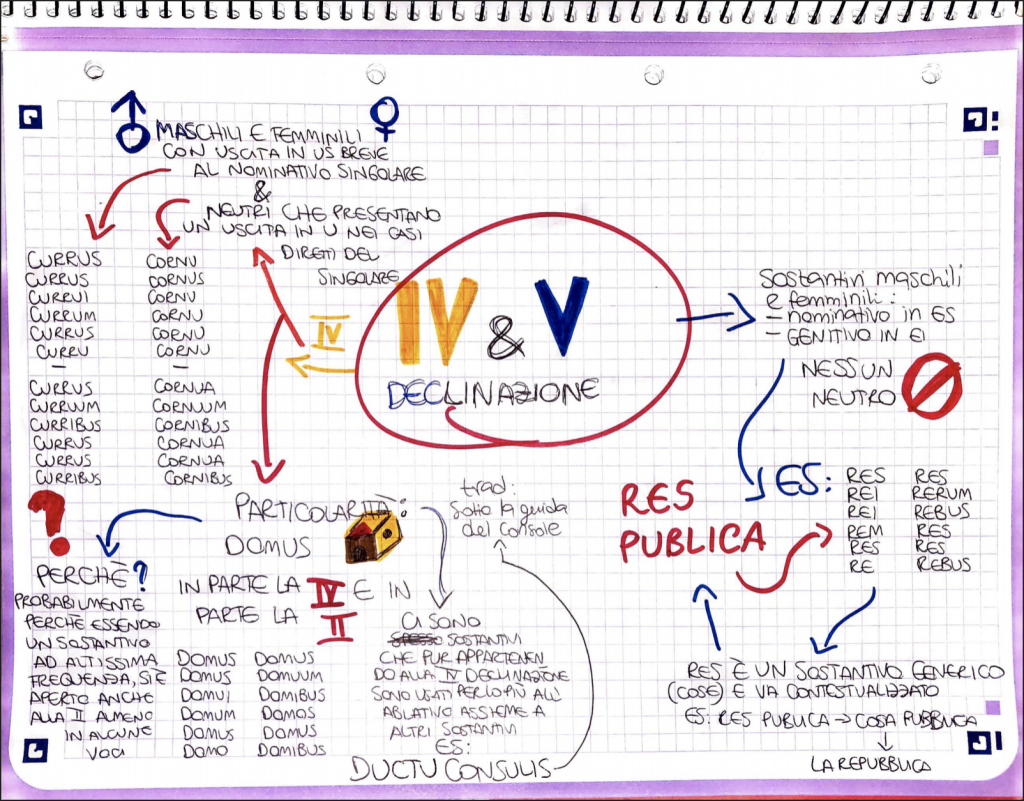 MASCHILI E FEMMINILI
CON USCITA IN US BREVE
AL NOMINATIVO SINGOLARE
&
NEUTRI CHE PRESENTANO
UN USCITA IN U NEI CASI
DIRETTI DEL
SINGOLARE
CURRUS CORNU
CURRUS CORNUS
CURRUI CORNU
CURRUM CORNU
CURRUS CORNU
CURRU CORNU
— —
CURRUS CORNUA
CURRUUM CORNUUM
CURRIBUS CORNIBUS
CURRUS CORNUA
CURRUS CORNUA
CURRIBUS CORNIBUS
IV
IV & V
DECLINAZIONE
Sostantivi maschili
e femminili:
– nominativo in ES
– GENITIVO IN EI
NESSUN
NEUTRO
ES:
RES RES
REI RERUM
REI REBUS
REM RES
RES RES
RE REBUS
RES
PUBLICA
RES È UN SOSTANTIVO GENERICO
(COSE) E VA CONTESTUALIZZATO
ES: RES PUBLICA → COSA PUBBLICA
LA REPUBBLICA
?
PARTICOLARITÀ:
DOMUS
IN PARTE LA IV E IN
PARTE LA II
PERCHÈ?
PROBABILMENTE
PERCHÈ ESSENDO
UN SOSTANTIVO
AD ALTISSIMA
FREQUENZA, SI È
APERTO ANCHE
ALLA II ALMENO
IN ALCUNE
VOCI
DOMUS DOMUS
DOMUS DOMUUM
DOMUI DOMIBUS
DOMUM DOMOS
DOMUS DOMUS
DOMO DOMIBUS
trad:
Sotto la guida
del Console
CI SONO
SPESSO SOSTANTIVI
CHE PUR APPARTENEN
DO ALLA IV DECLINAZIONE
SONO USATI PER LO PIÙ ALL'
ABLATIVO ASSIEME A
ALTRI SOSTANTIVI
ES:
DUCTU CONSULIS